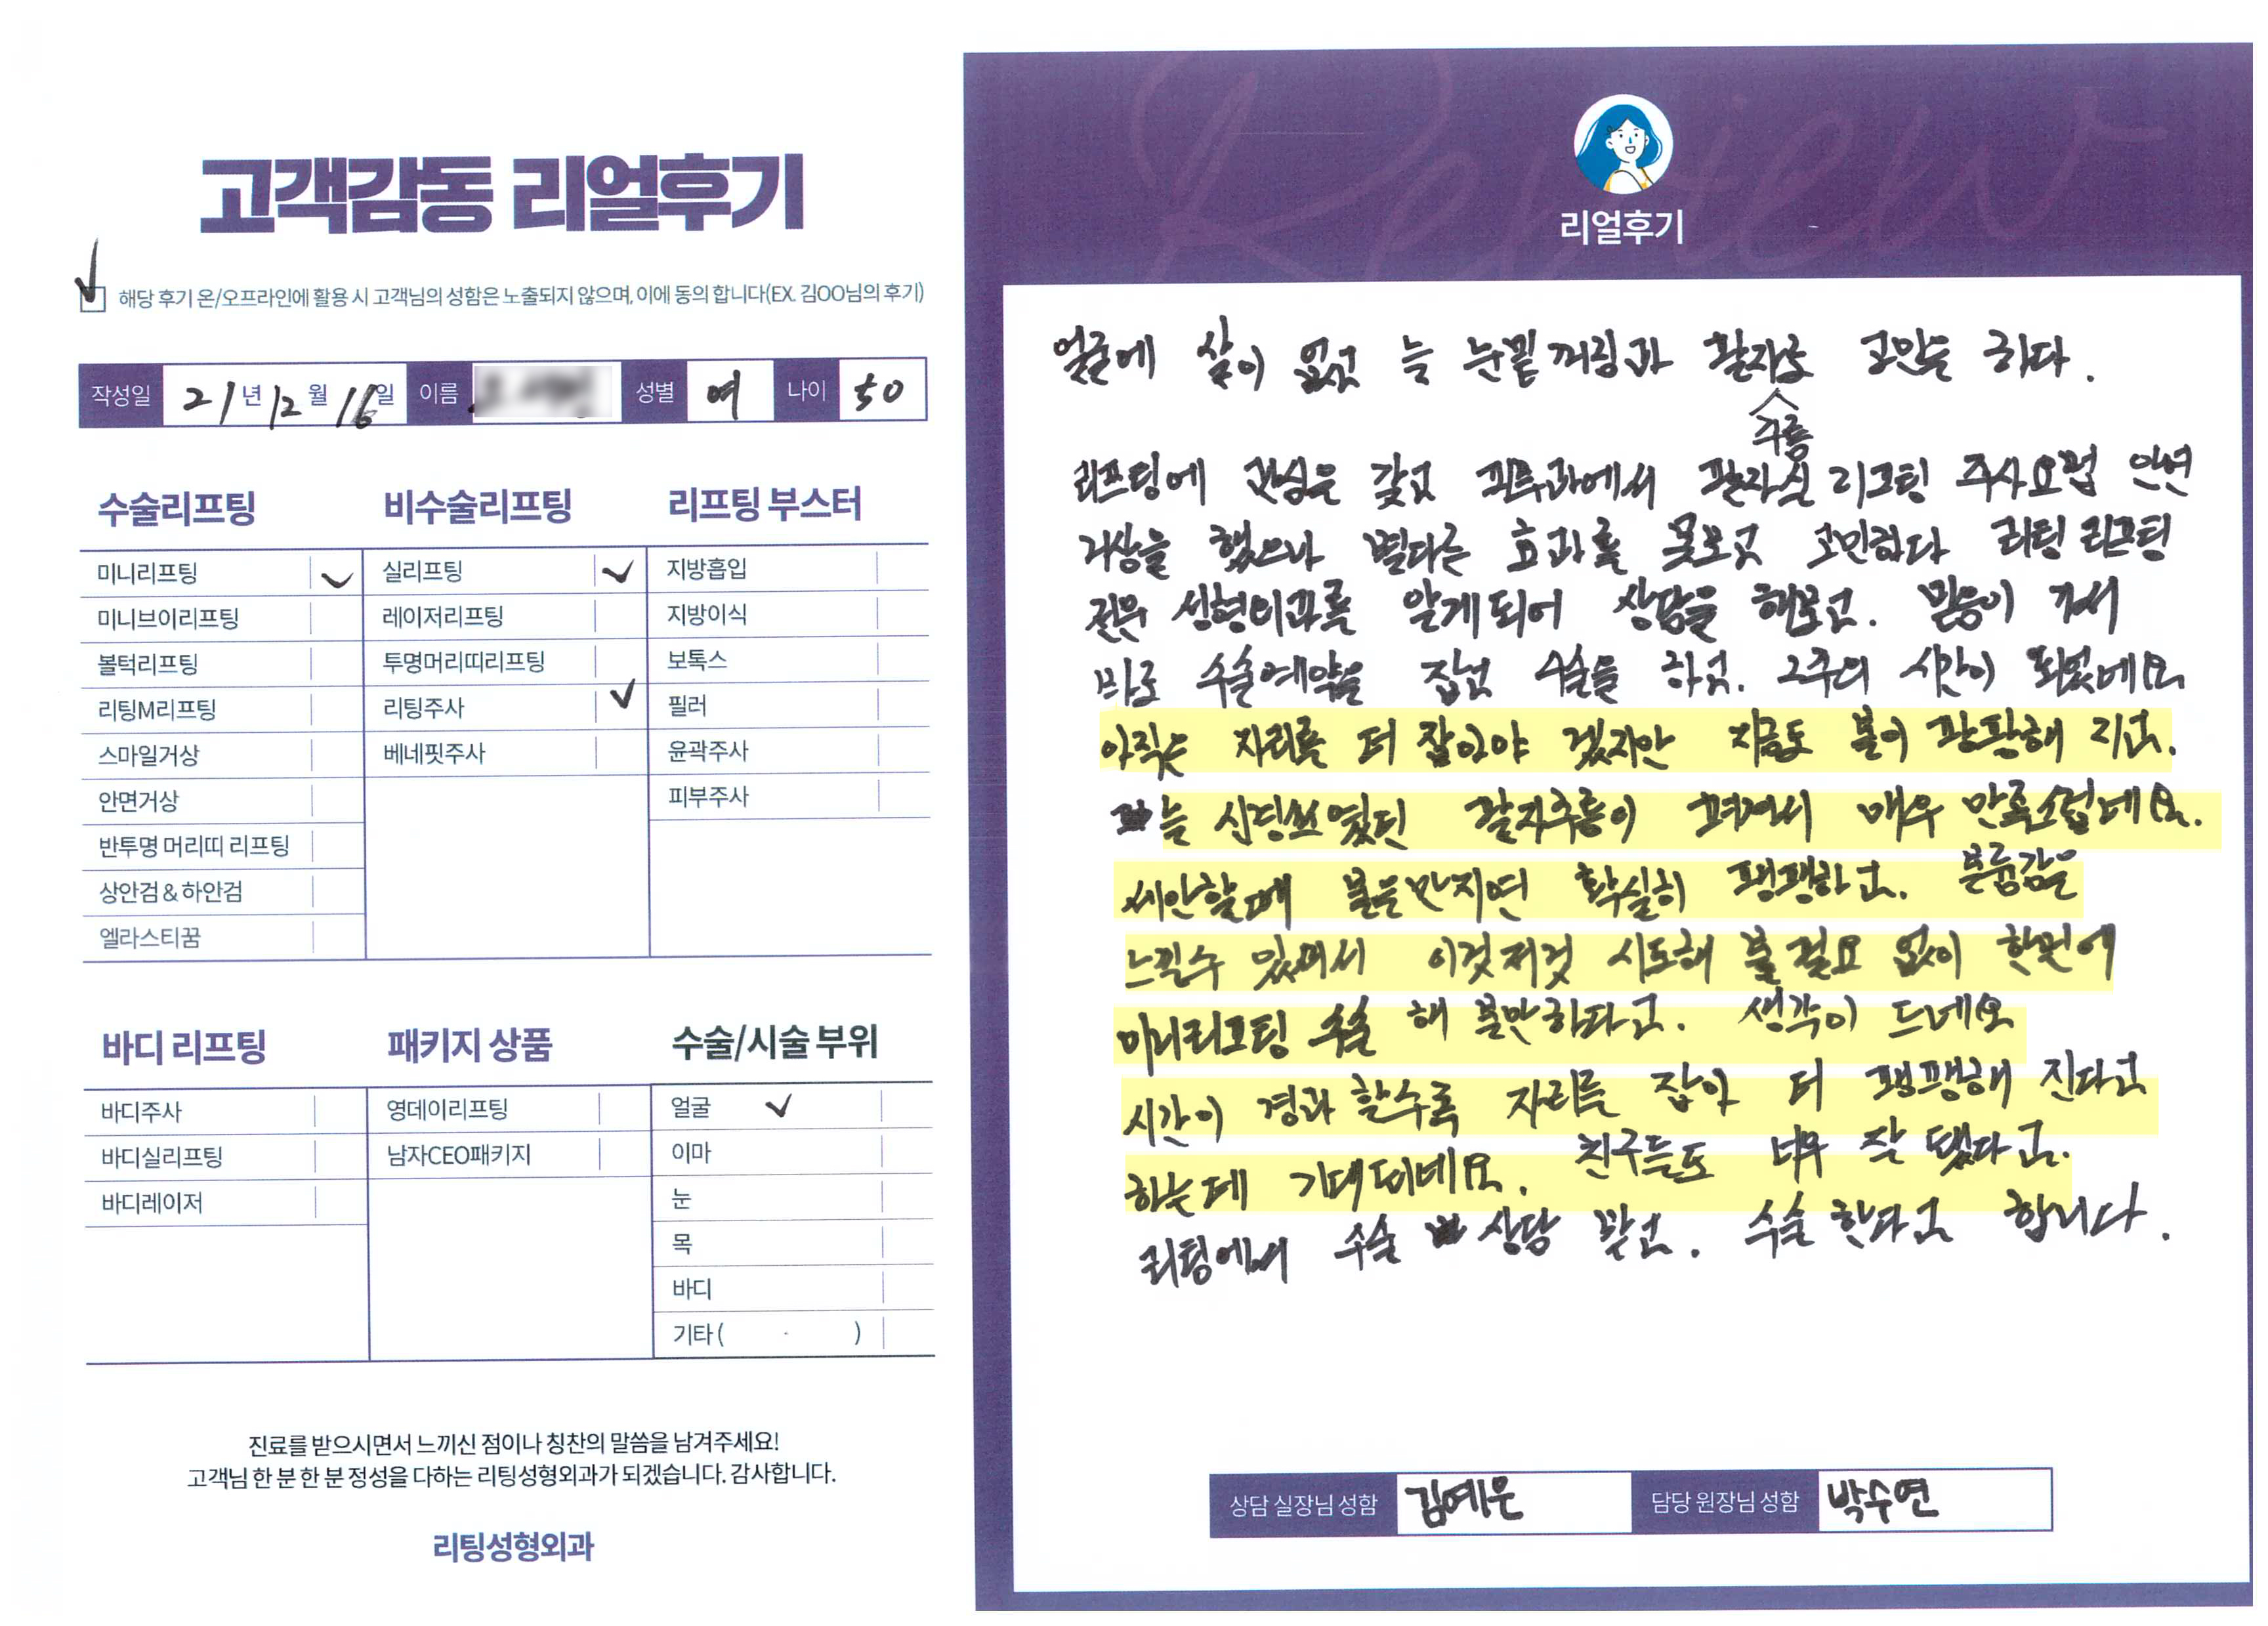 고객감동 리얼후기
해당 후기 온/오프라인에 활용 시 고객님의 성함은 노출되지 않으며, 이에 동의 합니다(EX. 김OO님의 후기)
작성일 21년 12월 16일 이름 성별 여 나이 50
수술리프팅
미니리프팅
미니브이리프팅
볼턱리프팅
리팅M리프팅
스마일거상
안면거상
반투명 머리띠 리프팅
상안검 & 하안검
엘라스티꿈
비수술리프팅
실리프팅
레이저리프팅
투명머리띠리프팅
리팅주사
베네핏주사
리프팅 부스터
지방흡입
지방이식
보톡스
필러
윤곽주사
피부주사
바디 리프팅
바디주사
바디실리프팅
바디레이저
패키지 상품
영데이리프팅
남자CEO패키지
수술/시술 부위
얼굴
이마
눈
목
바디
기타 ( )
진료를 받으시면서 느끼신 점이나 칭찬의 말씀을 남겨주세요!
고객님 한 분 한 분 정성을 다하는 리팅성형외과가 되겠습니다. 감사합니다.
리팅성형외과
Review
리얼후기
얼굴에 살이 없고 늘 눈밑 꺼짐과 팔자로 고민을 하다.
주름
리프팅에 관심을 갖고 피투과에서 팔자실 리프팅 주사요법 안면
거상을 했으나 별다른 효과를 못보고 고민하다 리팅 리프팅
전문 성형외과를 알게되어 상담을 해보고. 믿음이 가서
바로 수술예약을 잡고 수술을 하고. 2주의 시간이 되었네요
아직은 자리를 더 잡아야 겠지만 지금도 볼이 팡팡해 지고.
늘 신경쓰였던 팔자주름이 펴져서 매우 만족스럽네요.
세안할때 볼을 만지면 확실히 팽팽하고. 볼륨감을
느낄수 있어서 이것저것 시도해 볼 필요 없이 한번에
미니리프팅 수술 해 볼만하다고. 생각이 드네요
시간이 경과 할수록 자리를 잡아 더 팽팽해 진다고
하는데 기대되네요. 친구들도 너무 잘 됐다고.
리팅에서 수술 상담 받고. 수술 한다고 합니다.
상담 실장님 성함 김예은 담당 원장님 성함 박수연